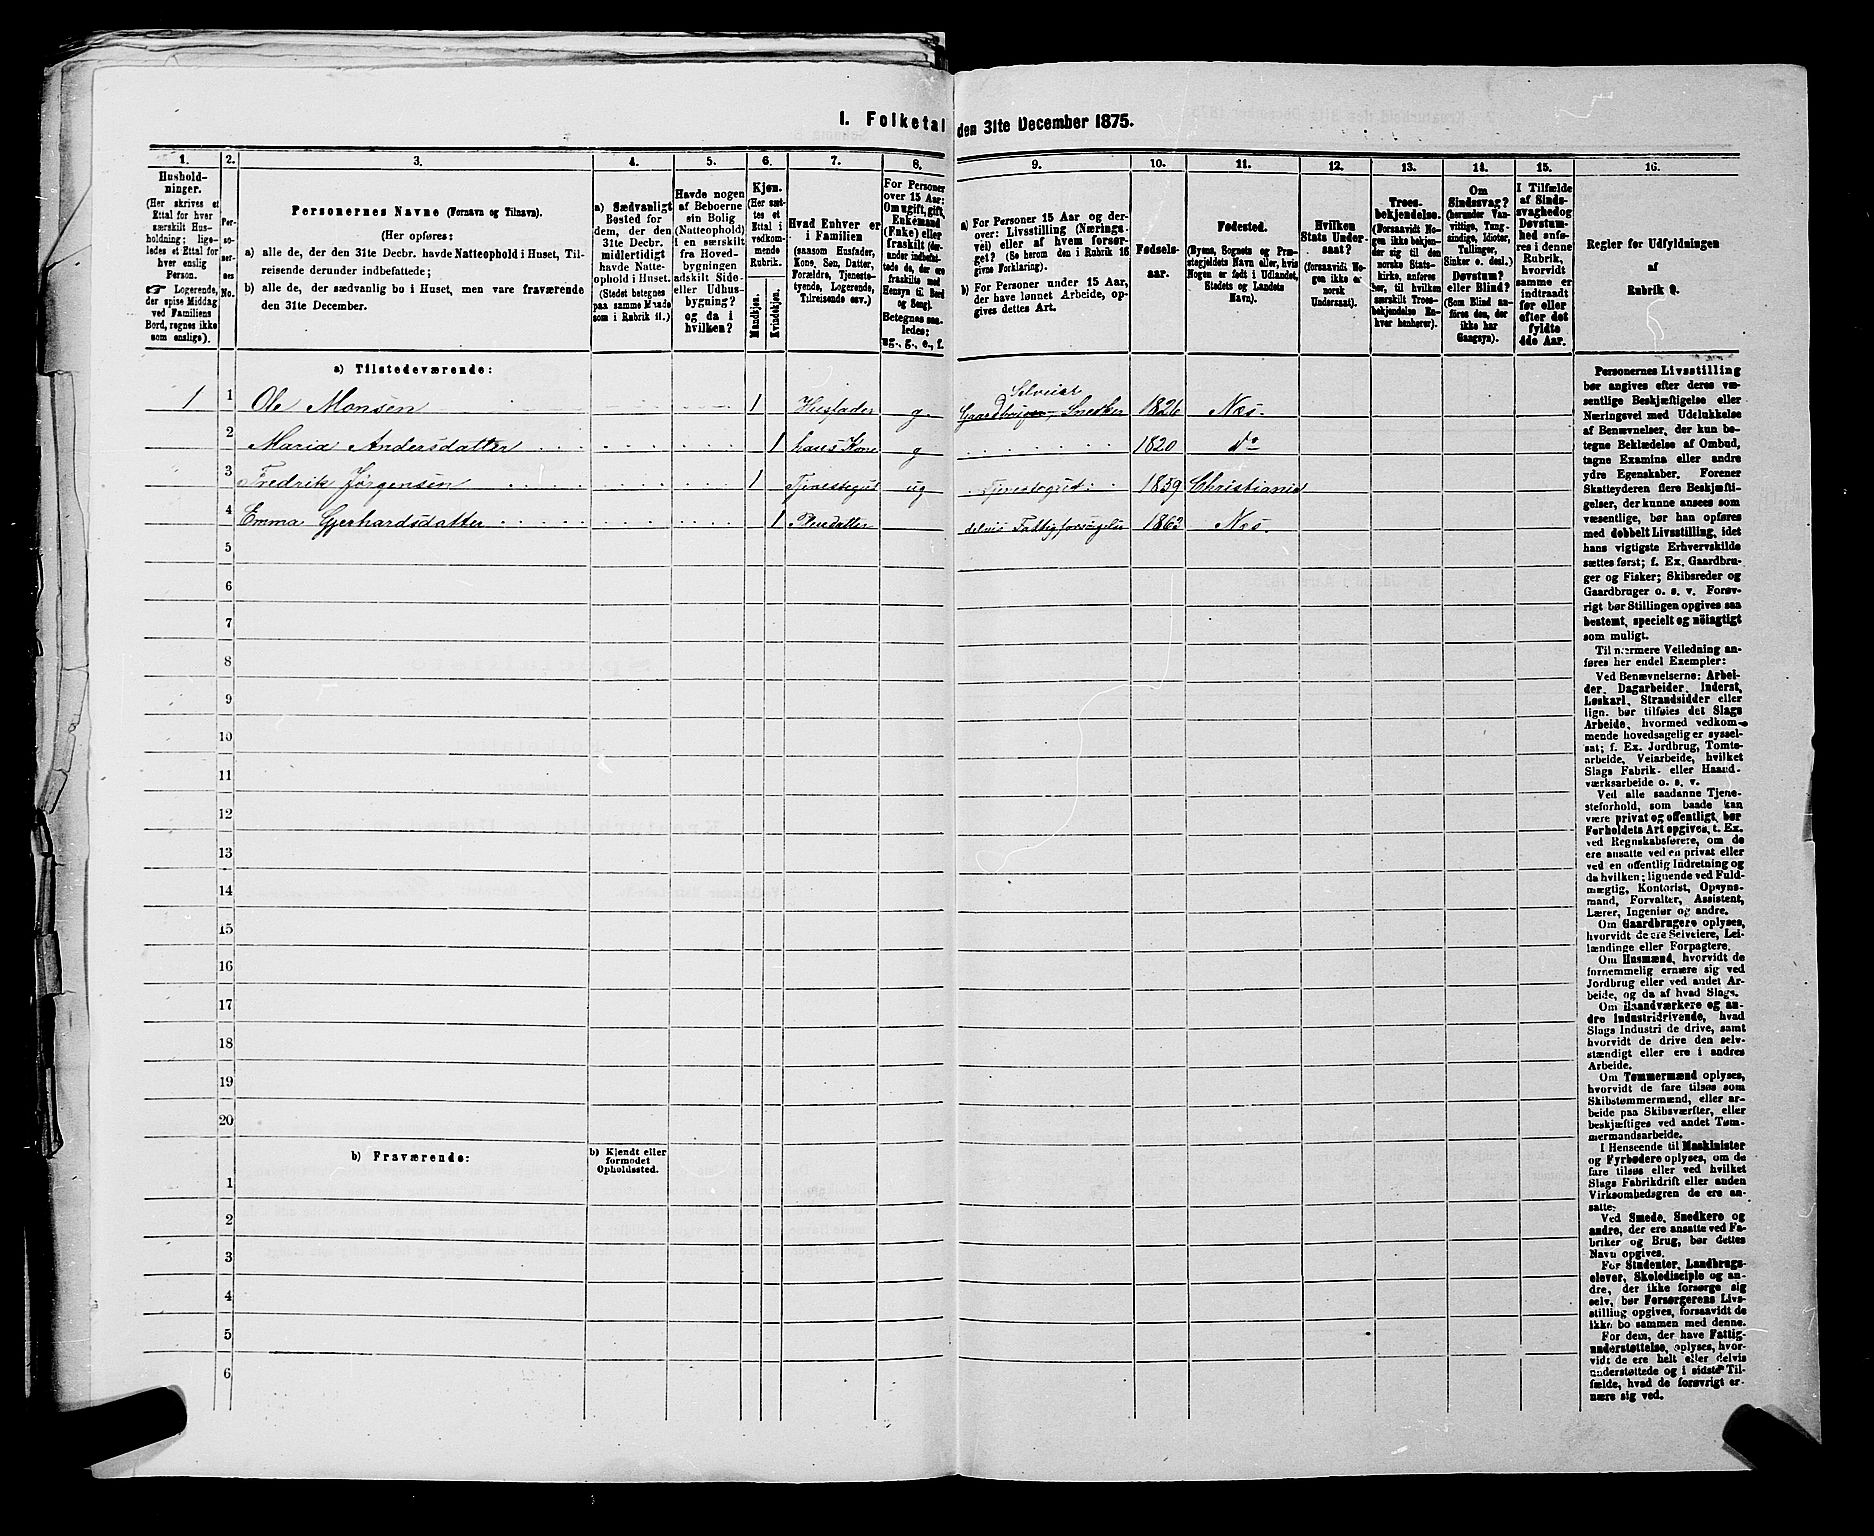 I. Folketal den 31te December 1875.
1. 2. 3. 4. 5. 6. 7. 8. 9. 10. 11. 12. 13. 14. 15. 16.
Hushold-
ninger.
(Her skrives et
Ettal for hver
særskilt Hus-
holdning; lige-
ledes et Ettal for
hver enslig
Person.
☞ Logerende,
der spise Middag
ved Familiens
Bord, regnes ikke
som enslige).
Per-
so-
ner-
nes
No.
Personernes Navne (Fornavn og Tilnavn).
(Her opføres:
a) alle de, der den 31te Decbr. havde Natteophold i Huset, Til-
reisende derunder indbefattede;
b) alle de, der sædvanlig bo i Huset, men vare fraværende
den 31te December.
a) Sædvanligt
Bosted for
dem, der den
31te Decbr.
midlertidigt
havde Natte-
ophold i Huset.
(Stedet betegnes
paa samme Maade
som i Rubrik 11.)
Havde nogen
af Beboerne
sin Bolig
(Natteophold)
i en særskilt
fra Hoved-
bygningen
adskilt Side-
eller Udhus-
bygning?
og da i
hvilken?
Kjøn.
(Her sæt-
tes et
Ettal i
vedkom-
mende
Rubrik.
Mandkjøn.
Kvindekjøn.
Hvad Enhver er
i Familien
(saasom Husfader,
Kone, Søn, Datter,
Forældre, Tjeneste-
tyende, Logerende,
Tilreisende osv.)
For Personer
over 15 Aar:
Om ugift, gift,
Enkemand
(Enke) eller
fraskilt (der-
under indbefat-
tede de, der ere
fraskilte med
Hensyn til Bord
og Seng).
Betegnes saa-
ledes:
ug., g., e., f.
a) For Personer 15 Aar og der-
over: Livsstilling (Nærings-
vei) eller af hvem forsør-
get? (Se herom den i Rubrik 16
givne Forklaring).
b) For Personer under 15 Aar,
der have lønnet Arbeide, op-
gives dettes Art.
Fødsels-
aar.
Fødested.
(Byens, Sognets og Præ-
stegjeldets Navn eller, hvis
Nogen er født i Udlandet,
Stedets og Landets
Navn).
Hvilken
Stats Under-
saat?
(forsaavidt No-
gen ikke er
norsk
Undersaat).
Troes-
bekjendelse.
(Forsaavidt No-
gen ikke bekjen-
der sig til den
norske Stats-
kirke, anføres
her, til hvilken
særskilt Troes-
bekjendelse En-
hver henhører).
Om
Sindssvag?
(herunder Van-
vittige, Tung-
sindige, Idioter,
Tullinger,
Sinker o. desl.)
Døvstum?
eller Blind?
(Som Blind an-
føres den, der
ikke har
Gangsyn).
I Tilfælde
af Sinds-
svaghed og
Døvstum-
hed anfø-
res i denne
Rubrik,
hvorvidt
samme er
indtraadt
før eller
efter det
fyldte
4de Aar.
Regler for Udfyldningen
af
Rubrik 9.
a) Tilstedeværende:
Selveier
1 1 Ole Monsen 1 Husfader g. Gaardbruger, Snedker 1826 Nes.
2 Maria Andersdatter 1 hans Kone g 1820 do
3 Fredrik Jørgensen 1 Tjenestegut ug Tjenestegut. 1859 Christiania
4 Emma Gerhardsdatter 1 Pleiedatter delvis Fattigforsørgelse 1862 Nes.
5
6
7
8
9
10
11
12
13
14
15
16
17
18
19
20
b) Fraværende:
b) Kjendt eller
formodet
Opholdssted.
1
2
3
4
5
6
Personernes Livsstilling
bør angives efter deres væ-
sentlige Beskjæftigelse eller
Næringsvei med Udelukkelse
af Benævnelser, der kun be-
tegne Beklædelse af Ombud,
tagne Examina eller andre
ydre Egenskaber. Forener
Skatteyderen flere Beskjæfti-
gelser, der kunne ansees som
væsentlige, bør han opføres
med dobbelt Livsstilling, idet
hans vigtigste Erhvervskilde
sættes først; f. Ex. Gaardbru-
ger og Fisker; Skibsreder og
Gaardbruger o. s. v. Forøv-
rigt bør Stillingen opgives saa
bestemt, specielt og nöiagtigt
som muligt.
Til nærmere Veiledning an-
føres her endel Exempler:
Ved Benævnelserne: Arbei-
der, Dagarbeider, Inderst,
Løskarl, Strandsidder eller
lign. bør tilføies det Slags
Arbeide, hvormed vedkom-
mende hovedsagelig er syssel-
sat; f. Ex. Jordbrug, Tomte-
arbeide, Veiarbeide, hvilket
Slags Fabrik- eller Haand-
værksarbeide o. s. v.
Ved alle saadanne Tjene-
steforhold, som baade kan
være privat og offentligt, bør
Forholdets Art opgives, t. Ex.
ved Regnskabsførere, om de
ere ansatte ved en privat eller
ved en offentlig Indretning og
da hvilken; lignende ved Fuld-
mægtig, Kontorist, Opsyns-
mand, Forvalter, Assistent,
Lærer, Ingeniør og andre.
Om Gaardbrugere oplyses,
hvorvidt de ere Selveiere, Lei-
lændinge eller Forpagtere.
Om Husmænd, hvorvidt de
fornemmelig ernære sig ved
Jordbrug eller ved andet Ar-
beide, og da af hvad Slags.
Om Haandværkere og an-
dre Industridrivende, hvad
Slags Industri de drive, samt
hvorvidt de drive den selv-
stændigt eller ere i andres
Arbeide.
Om Tømmermænd oplyses,
hvorvidt de fare tilsøs som
Skibstømmermænd, eller ar-
beide paa Skibsværfter, eller
beskjæftiges ved andet Tøm-
mermandsarbeide.
I Henseende til Maskinister
og Fyrbødere oplyses, om de
fare tilsøs eller ved hvilket
Slags Fabrikdrift eller anden
Virksomhedsgren de ere an-
satte.
Ved Smede, Snedkere og
andre, der ere ansatte ved Fa-
briker og Brug, bør dettes
Navn opgives.
For Studenter, Landbrugs-
elever, Skoledisciple og an-
dre, der ikke forsørge sig
selv, bør Forsørgerens Livs-
stilling opgives, forsaavidt de
ikke bo sammen med denne.
For dem, der have Fattig-
understøttelse, oplyses, hvor-
vidt de ere helt eller delvis
understøttede og i sidste Til-
fælde, hvad de forøvrigt er-
nære sig ved.